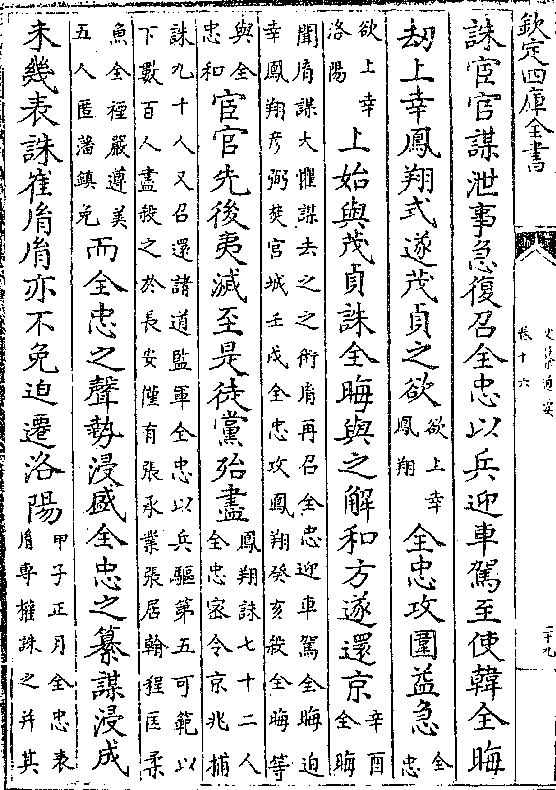 欽定四庫全書
史纂通要
卷十六
二十九
誅宦官謀泄事急復召全忠以兵迎車駕至使韓全晦
刼上幸鳳翔式遂茂貞之欲
欲上幸
鳳翔
全忠攻圍益急
全
忠
欲上幸
洛陽
上始與茂貞誅全晦與之解和方遂還京
辛酉
全晦
聞𦙍謀大懼謀去之之術𦙍再召全忠迎車駕全晦迫
幸鳳翔彦弼焚宫城壬戌全忠攻鳳翔癸亥殺全晦等
與全
忠和
宦官先後夷滅至是徒黨殆盡
鳳翔誅七十二人
全忠宻令京兆捕
誅九十人又召還諸道監軍全忠以兵驅第五可範以
下數百人盡殺之於長安僅有張承業張居翰程匡柔
魚全禋嚴遵美
五人匿藩鎮免
而全忠之聲勢浸盛全忠之纂謀浸成
未幾表誅崔𦙍𦙍亦不免迫遷洛陽
甲子正月全忠表
𦙍專權誅之并其